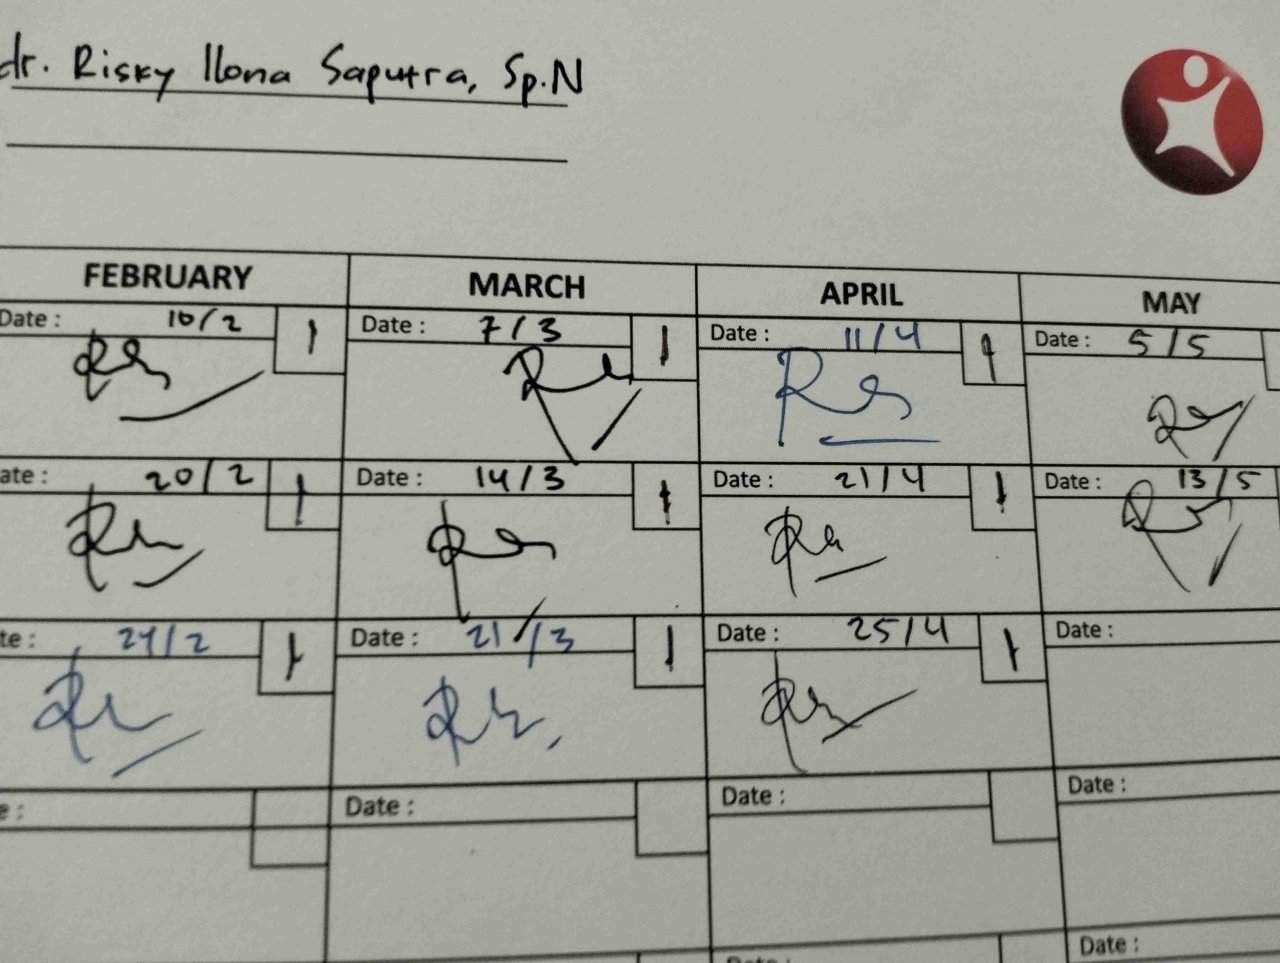 dr. Risky Ilona Saputra, Sp.N
FEBRUARY MARCH APRIL MAY
Date : 10/2 1 Date : 7/3 1 Date : 11/4 1 Date : 5/5
ate : 20/2 1 Date : 14/3 1 Date : 21/4 1 Date : 13/5
te : 24/2 1 Date : 21/3 1 Date : 25/4 1 Date :
e : Date : Date : Date :
Date : Date :